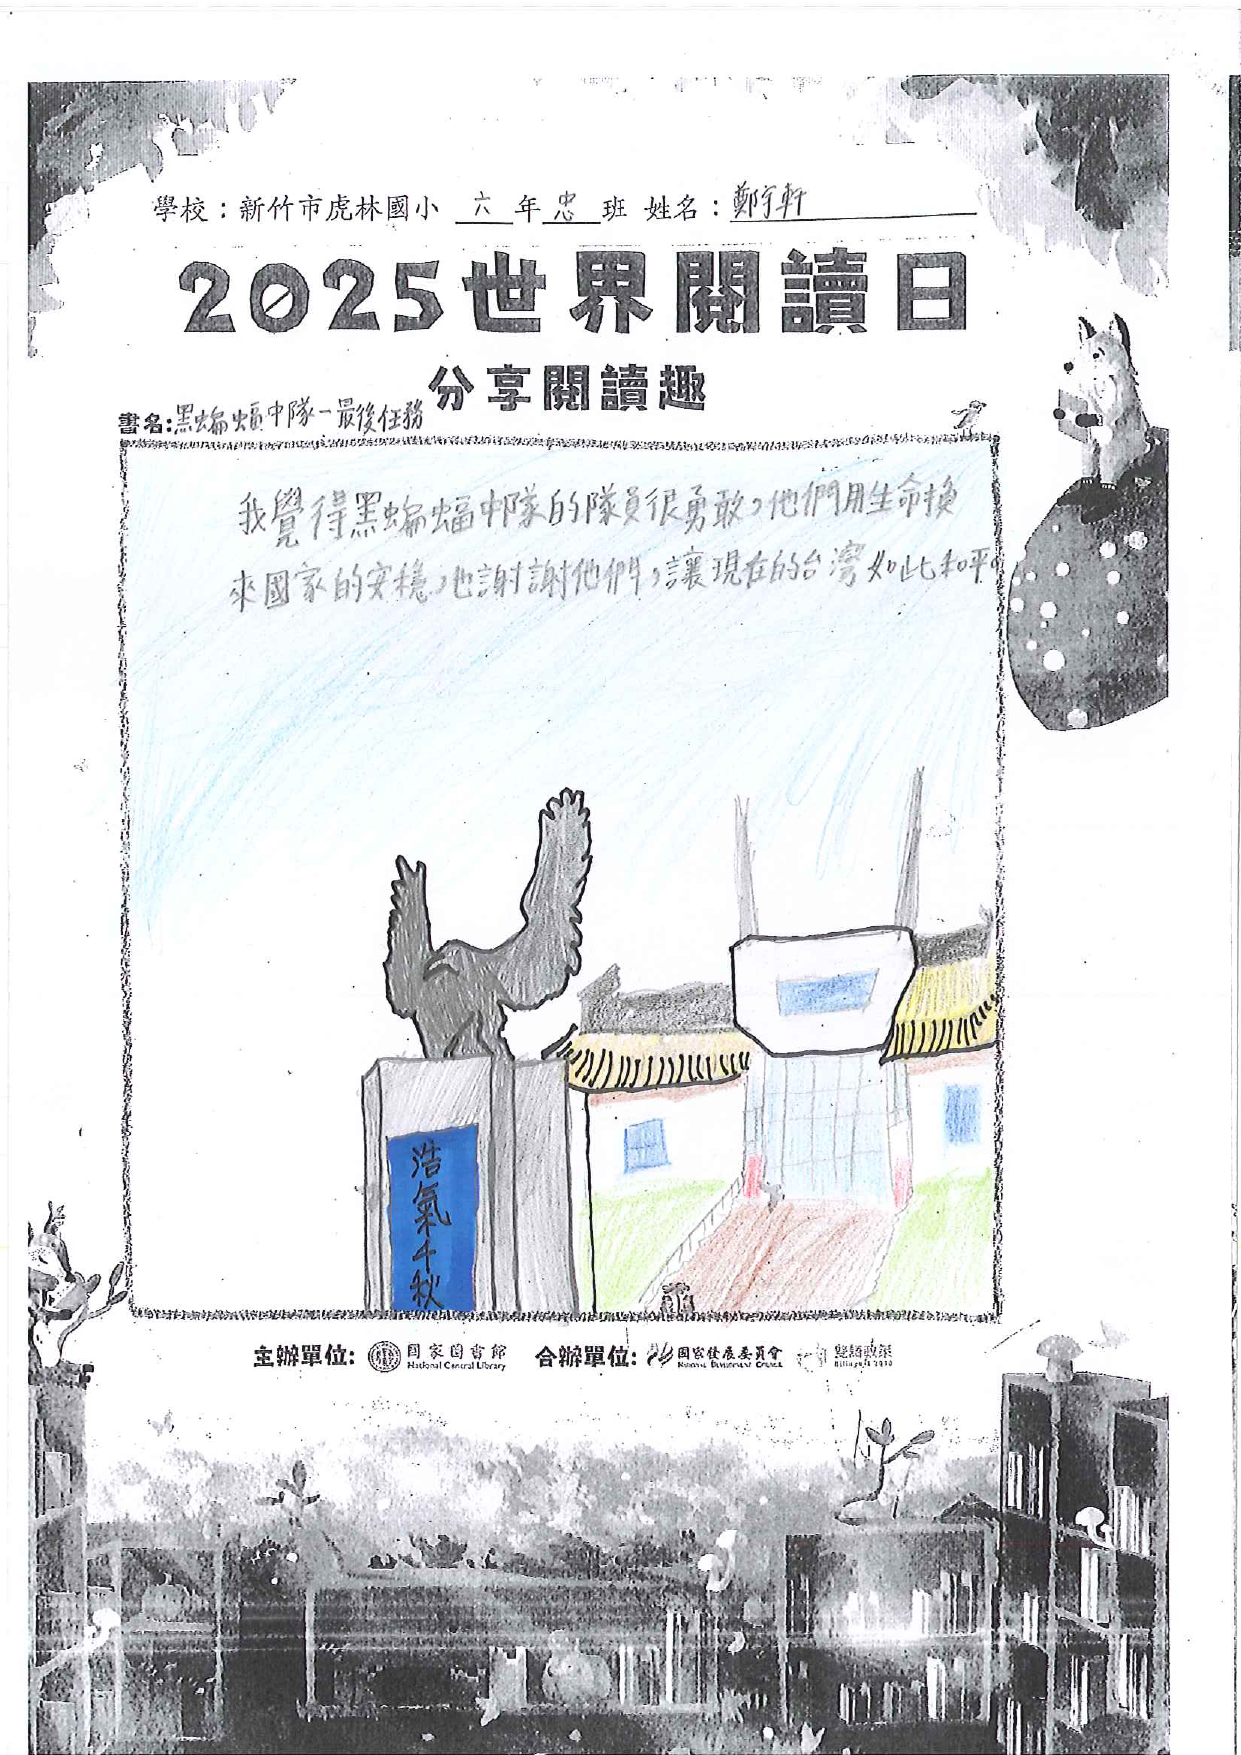 學校：新竹市虎林國小 六 年 忠 班 姓名：鄭宇軒
2025世界閱讀日
分享閱讀趣
書名:黑蝙蝠中隊－最後任務
我覺得黑蝙蝠中隊的隊員很勇敢，他們用生命換
來國家的安穩，也謝謝他們，讓現在的台灣如此和平。
浩氣千秋
主辦單位: 國家圖書館 National Central Library 合辦單位: 國家發展委員會 National Development Council 雙語政策 Bilingual 2030